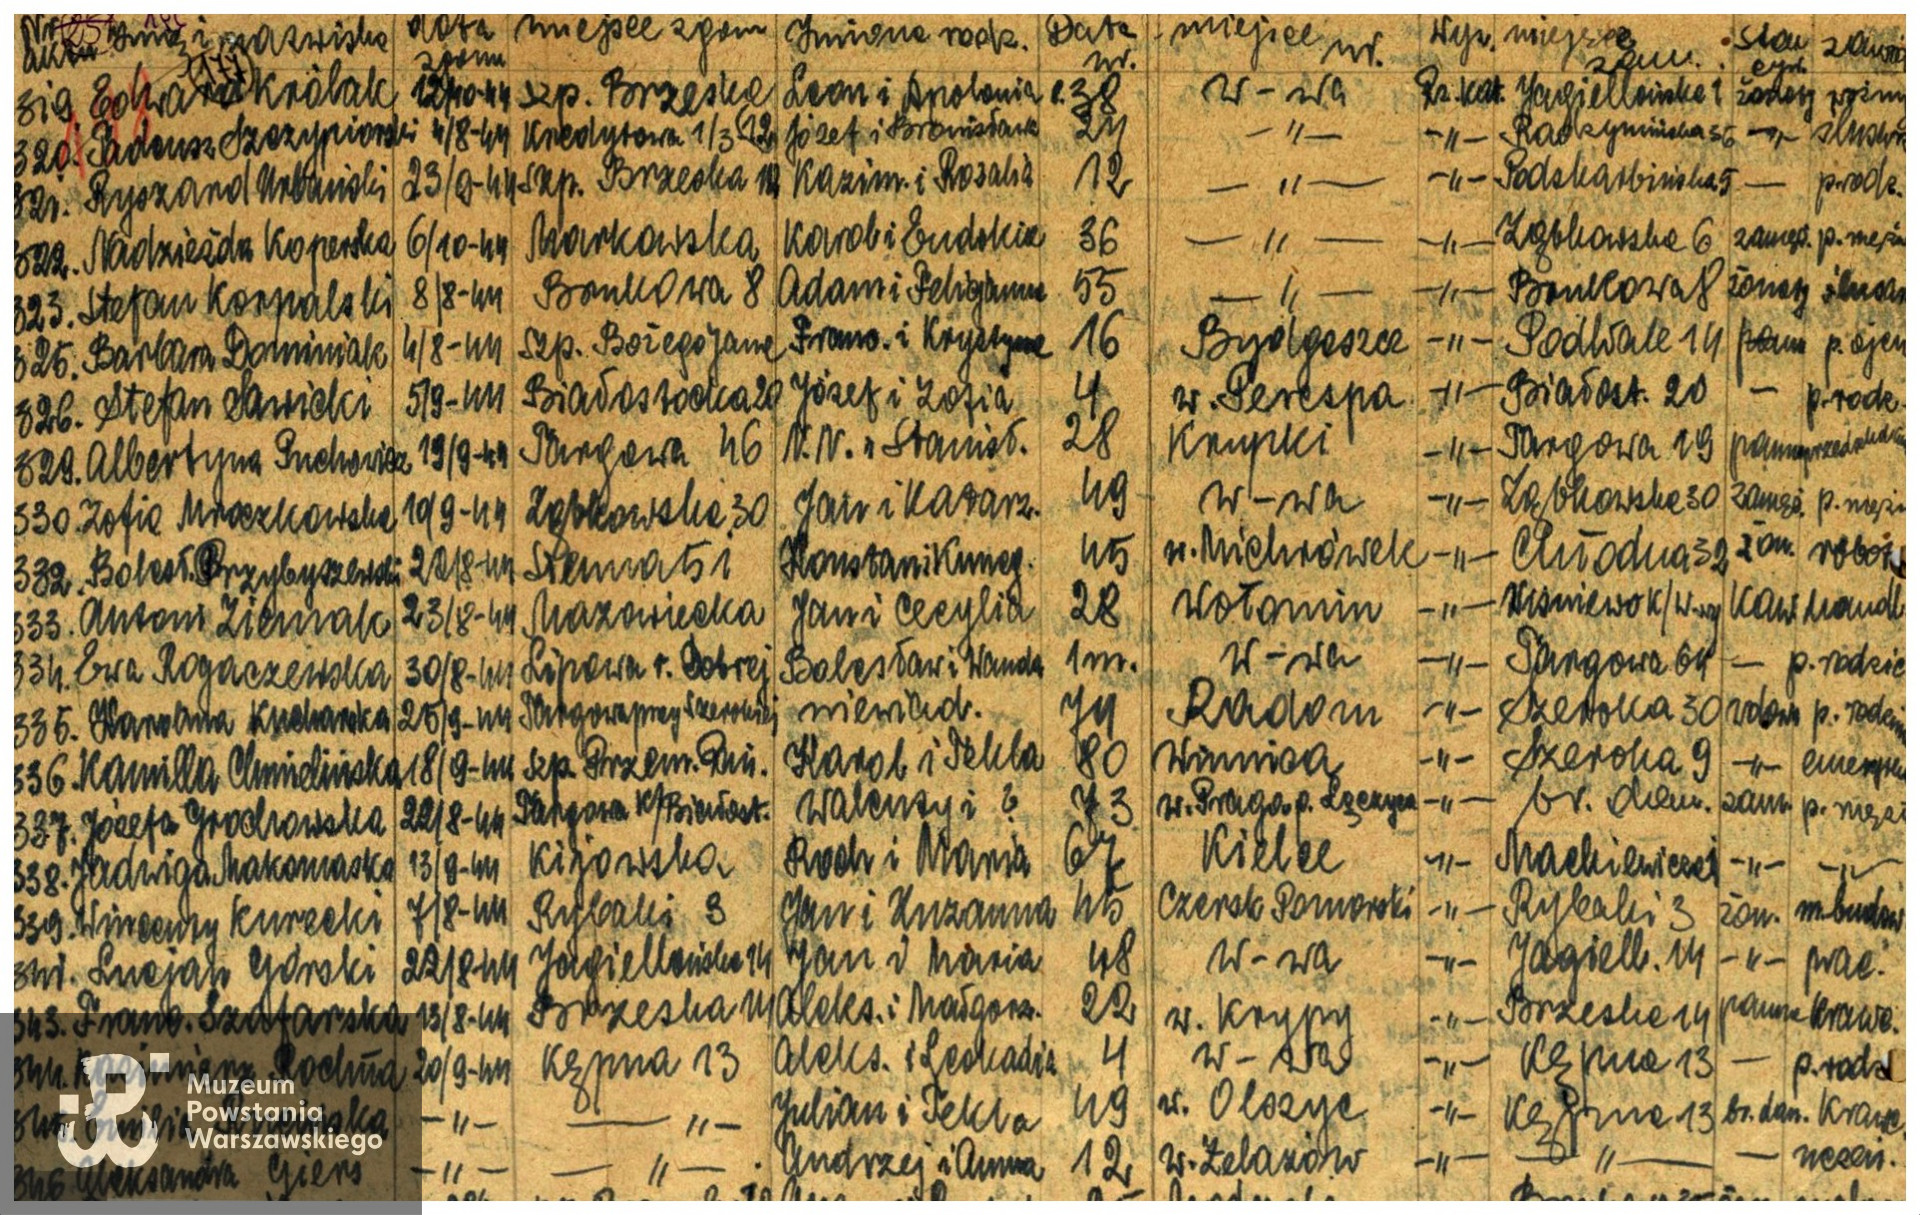 Imię i nazwisko data zgonu miejsce zgonu Imiona rodz. Data ur. miejsce ur. Wyz. miejsce zam. stan cyw.
319. Edward Królak 12/10-44 Szp. Brzeska Leon i Apolonia 38 W-wa Rz. kat. Jagiellońska 1 żonaty woźny
320. Tadeusz Szczypiorski 4/8-44 Kredytowa 1/3 Józef i Bronisława 24 -"- -"- Radzymińska -"-
321. Ryszard Urbański 23/9-44 Szp. Brzeska Kazim. i Rozalia 12 -"- -"- Podskarbińska 5 — p. rodz.
322. Nadzieżda Koperska 6/10-44 Markowska Karol i Eudokia 36 -"- -"- Ząbkowska 6 zamęż. p. męża
323. Stefan Korpalski 8/8-44 Brukowa 8 Adam i Felicjanna 55 -"- -"- Brukowa 8 żonaty
325. Barbara Dominiak 4/8-44 Szp. Bożego Jana Franc. i Krystyna 16 Bydgoszcz -"- Podwale 14 p. ojcu
326. Stefan Sawicki 5/9-44 Białostocka 20 Józef i Zofia 4 w. Perespa -"- Białost. 20 - p. rodz.
329. Albertyna 19/9-44 Targowa 46 N.N. i Stanisł. 28 Krupki -"- Targowa 19 panna
330. Zofia Mroczkowska 19/9-44 Ząbkowska 30 Jan i Katarz. 49 W-wa -"- Ząbkowska 30 zamęż. p. męża
332. Bolesł. Przybyszewski 22/8-44 Konstan i Kuneg. 45 w. Michrówek -"- Chłodna 32 żon. robot
333. Antoni Ziemak 23/8-44 Mazowiecka Jan i Cecylia 28 Wołomin -"- Wiśniewo k/W-wy kaw handl
334. Ewa Rogaczewska 30/8-44 Lipowa r. Dobrej Bolesław i Wanda 1 m. W-wa -"- Targowa 64 — p. rodzic
335. Karolina Kucharska 25/9-44 Targowa przy Szerokiej niewiad. 74 Radom -"- Szeroka 30 wdowa
336. Kamilla Chmielińska 18/9-44 Szp. Przem. Pań. Karol i Tekla 80 Winnica -"- Szeroka 9 -"-
337. Józefa Grochowska 22/8-44 Targowa k/Białost. Walenty i ? 73 w. Praga p. Łęczyca -"- br. dan. zam. p. męża
338. Jadwiga Makomaska 13/9-44 Kijowska Roch i Maria 67 Kielce -"- Mackiewicza 1 -"- -"-
339. Wincenty Kurecki 7/8-44 Rybaki 3 Jan i Zuzanna 45 Czersk Pomorski -"- Rybaki 3 żon. m. budow
341. Lucjan Górski 22/8-44 Jagiellońska 14 Jan i Maria 48 W-wa -"- Jagiell. 14 -"- prac.
343. Franc. Szafarska 13/8-44 Brzeska 14 Aleks. i Małgorz. 22 w. Krypy -"- Brzeska 14 panna krawc.
344. Kazimierz 20/9-44 Kępna 13 Aleks. i Leokadia 4 W-wa -"- Kępna 13 — p. rodz
345. -"- -"- Julian i Tekla 49 w. Olszyc -"- Kępna 13 br. dan. krawc.
346 Aleksandra Giers -"- -"- Andrzej i Anna 12 w. Żelazów -"- -"- — uczen.
Muzeum
Powstania
Warszawskiego